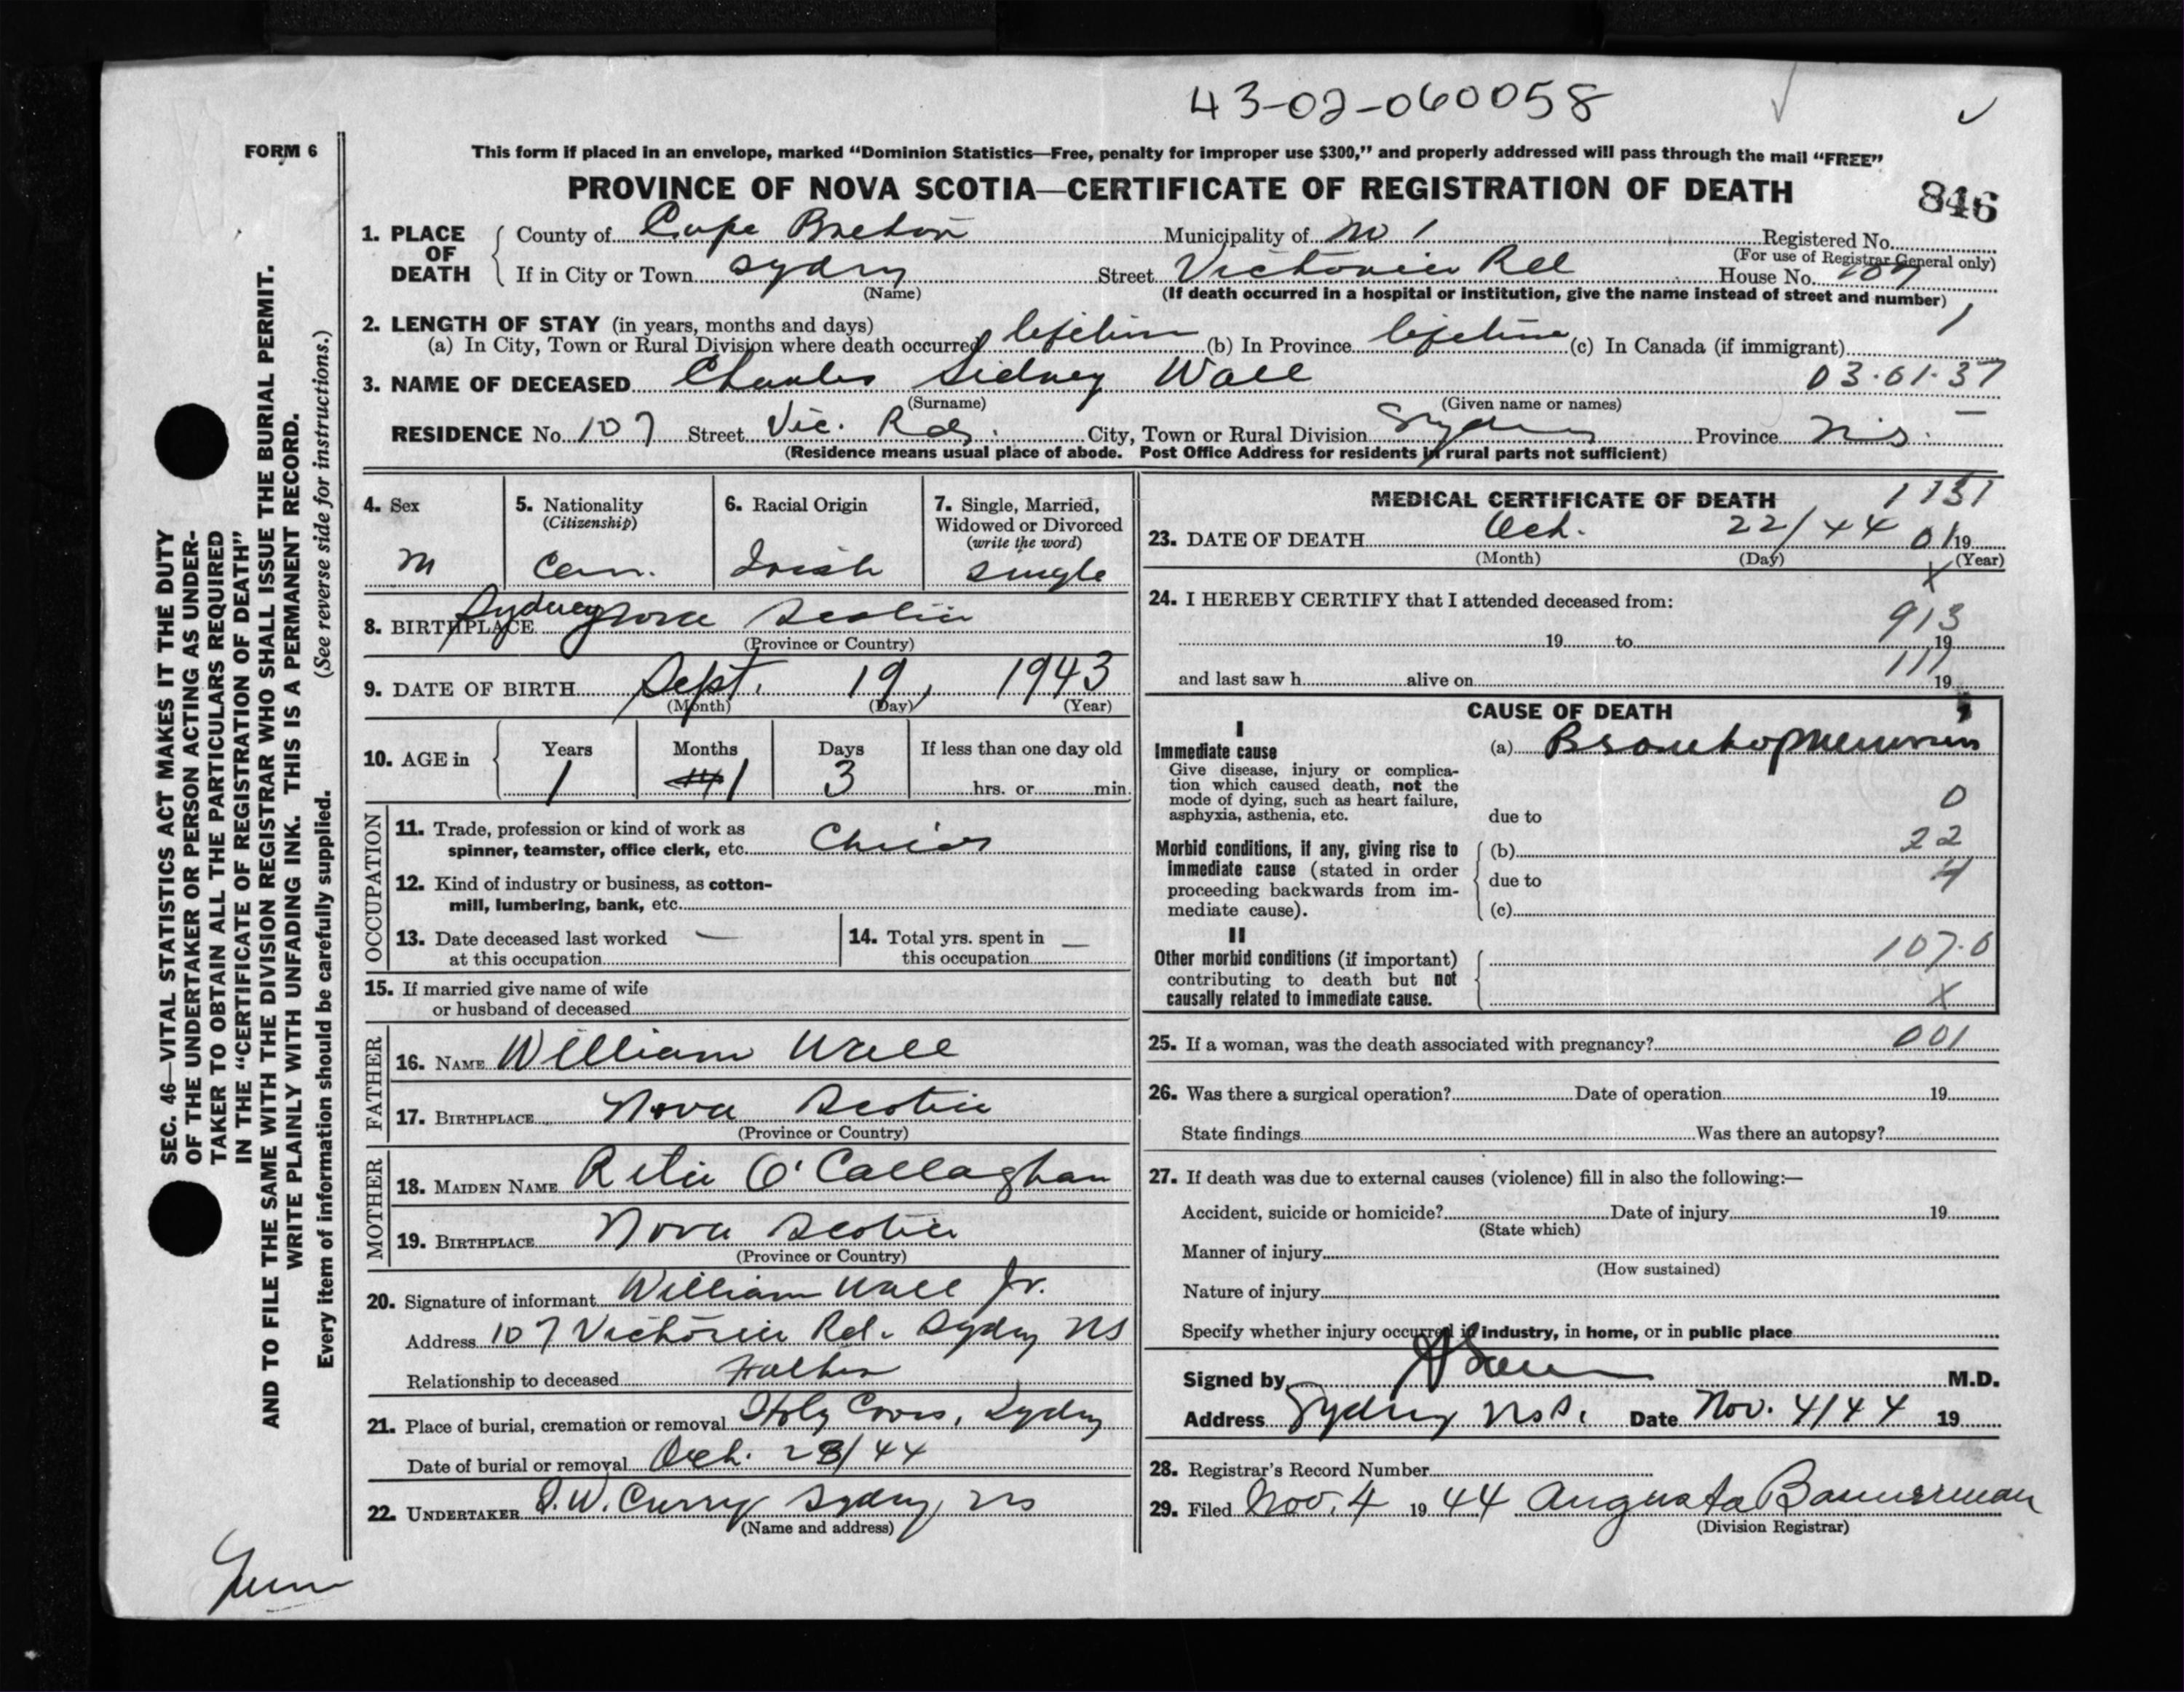 43-02-060058
FORM 6
This form if placed in an envelope, marked “Dominion Statistics—Free, penalty for improper use $300,” and properly addressed will pass through the mail “FREE”
PROVINCE OF NOVA SCOTIA—CERTIFICATE OF REGISTRATION OF DEATH
846
1. PLACE OF DEATH
County of Cape Breton Municipality of No 1 Registered No.
(For use of Registrar General only)
If in City or Town Sydney Street Victoria Rd House No. 107
(Name) (If death occurred in a hospital or institution, give the name instead of street and number)
1
2. LENGTH OF STAY (in years, months and days)
(a) In City, Town or Rural Division where death occurred lifetime (b) In Province lifetime (c) In Canada (if immigrant)
3. NAME OF DECEASED Charles Sidney Wall 03.01.37
(Surname) (Given name or names)
RESIDENCE No. 107 Street Vic. Rd. City, Town or Rural Division Sydney Province N.S.
(Residence means usual place of abode. Post Office Address for residents in rural parts not sufficient)
4. Sex
M
5. Nationality
(Citizenship)
Can.
6. Racial Origin
Irish
7. Single, Married,
Widowed or Divorced
(write the word)
single
8. BIRTHPLACE Sydney Nova Scotia
(Province or Country)
9. DATE OF BIRTH Sept. 19, 1943
(Month) (Day) (Year)
10. AGE in
Years Months Days If less than one day old
1 1 3 hrs. or min.
OCCUPATION
11. Trade, profession or kind of work as
spinner, teamster, office clerk, etc. Child
12. Kind of industry or business, as cotton-
mill, lumbering, bank, etc.
13. Date deceased last worked —
at this occupation
14. Total yrs. spent in —
this occupation
15. If married give name of wife
or husband of deceased
FATHER
16. NAME William Wall
17. BIRTHPLACE Nova Scotia
(Province or Country)
MOTHER
18. MAIDEN NAME Rita O'Callaghan
19. BIRTHPLACE Nova Scotia
(Province or Country)
20. Signature of informant William Wall Jr.
Address 107 Victoria Rd. Sydney NS
Relationship to deceased Father
21. Place of burial, cremation or removal Holy Cross, Sydney
Date of burial or removal Oct. 23/44
22. UNDERTAKER D.W. Curry Sydney NS
(Name and address)
MEDICAL CERTIFICATE OF DEATH 1131
23. DATE OF DEATH Oct. 22/44 01 19
(Month) (Day) (Year)
X
24. I HEREBY CERTIFY that I attended deceased from:
913
19 to 19
111
and last saw h alive on 19
CAUSE OF DEATH
I
Immediate cause
Give disease, injury or complica-
tion which caused death, not the
mode of dying, such as heart failure,
asphyxia, asthenia, etc.
(a) Bronchopneumonia
0
due to
Morbid conditions, if any, giving rise to
immediate cause (stated in order
proceeding backwards from im-
mediate cause).
(b) 22
due to 4
(c)
II
Other morbid conditions (if important)
contributing to death but not
causally related to immediate cause.
107.0
X
25. If a woman, was the death associated with pregnancy? 001
26. Was there a surgical operation? Date of operation 19
State findings Was there an autopsy?
27. If death was due to external causes (violence) fill in also the following:—
Accident, suicide or homicide? Date of injury 19
(State which)
Manner of injury
(How sustained)
Nature of injury
Specify whether injury occurred in industry, in home, or in public place
Signed by M.D.
Address Sydney N.S. Date Nov. 4/44 19
28. Registrar's Record Number
29. Filed Nov. 4 19 44 Augusta Bannerman
(Division Registrar)
SEC. 46—VITAL STATISTICS ACT MAKES IT THE DUTY
OF THE UNDERTAKER OR PERSON ACTING AS UNDER-
TAKER TO OBTAIN ALL THE PARTICULARS REQUIRED
IN THE “CERTIFICATE OF REGISTRATION OF DEATH”
AND TO FILE THE SAME WITH THE DIVISION REGISTRAR WHO SHALL ISSUE THE BURIAL PERMIT.
WRITE PLAINLY WITH UNFADING INK. THIS IS A PERMANENT RECORD.
Every item of information should be carefully supplied. (See reverse side for instructions.)